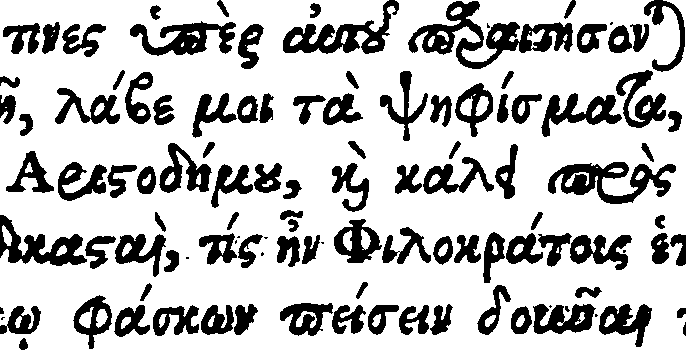 τινες ὑπὲρ αὐτοῦ παραιτήσον)
λάβε μοι τὰ ψηφίσματα,
Ἀριστοδήμου, καὶ κάλει πρὸς
δικασταὶ, τίς ἦν Φιλοκράτοις
φάσκων πείσειν δοκοῦσαι